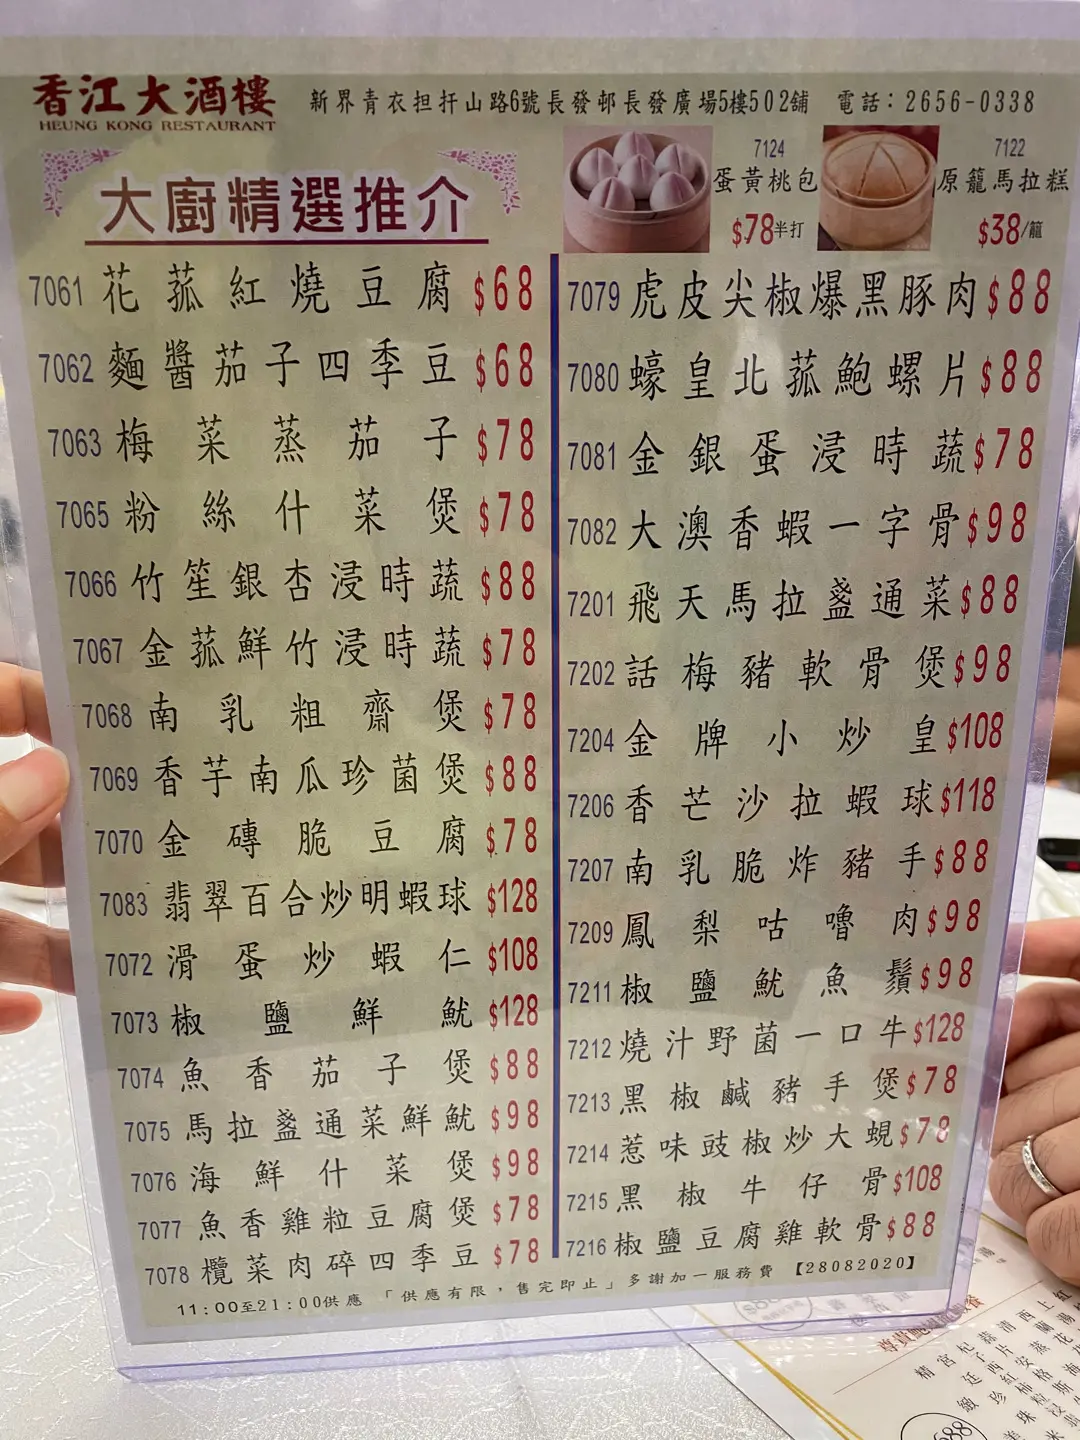 香江大酒樓
HEUNG KONG RESTAURANT
新界青衣担扞山路6號長發邨長發廣場5樓502舖 電話：2656-0338
大廚精選推介
7124
蛋黃桃包
$78半打
7122
原籠馬拉糕
$38/籠
7061 花菰紅燒豆腐 $68
7062 麵醬茄子四季豆 $68
7063 梅菜蒸茄子 $78
7065 粉絲什菜煲 $78
7066 竹笙銀杏浸時蔬 $88
7067 金菰鮮竹浸時蔬 $78
7068 南乳粗齋煲 $78
7069 香芋南瓜珍菌煲 $88
7070 金磚脆豆腐 $78
7083 翡翠百合炒明蝦球 $128
7072 滑蛋炒蝦仁 $108
7073 椒鹽鮮魷 $128
7074 魚香茄子煲 $88
7075 馬拉盞通菜鮮魷 $98
7076 海鮮什菜煲 $98
7077 魚香雞粒豆腐煲 $78
7078 欖菜肉碎四季豆 $78
7079 虎皮尖椒爆黑豚肉 $88
7080 蠔皇北菰鮑螺片 $88
7081 金銀蛋浸時蔬 $78
7082 大澳香蝦一字骨 $98
7201 飛天馬拉盞通菜 $88
7202 話梅豬軟骨煲 $98
7204 金牌小炒皇 $108
7206 香芒沙拉蝦球 $118
7207 南乳脆炸豬手 $88
7209 鳳梨咕嚕肉 $98
7211 椒鹽魷魚鬚 $98
7212 燒汁野菌一口牛 $128
7213 黑椒鹹豬手煲 $78
7214 惹味豉椒炒大蜆 $78
7215 黑椒牛仔骨 $108
7216 椒鹽豆腐雞軟骨 $88
11:00至21:00供應 「供應有限，售完即止」多謝加一服務費 【28082020】